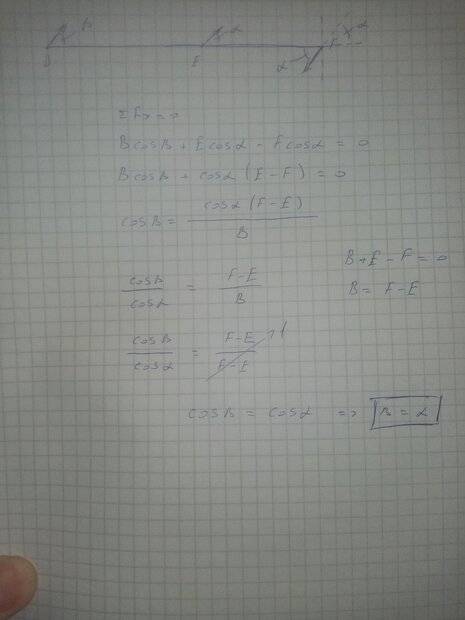 β α α
B E α F
Σ Fx = 0
B cosβ + E cosα - F cosα = 0
B cosβ + cosα (E - F) = 0
cosβ = cosα (F - E) / B
B + E - F = 0
cosβ / cosα = F - E / B
B = F - E
cosβ / cosα = F - E / F - E 1
cosβ = cosα => β = α